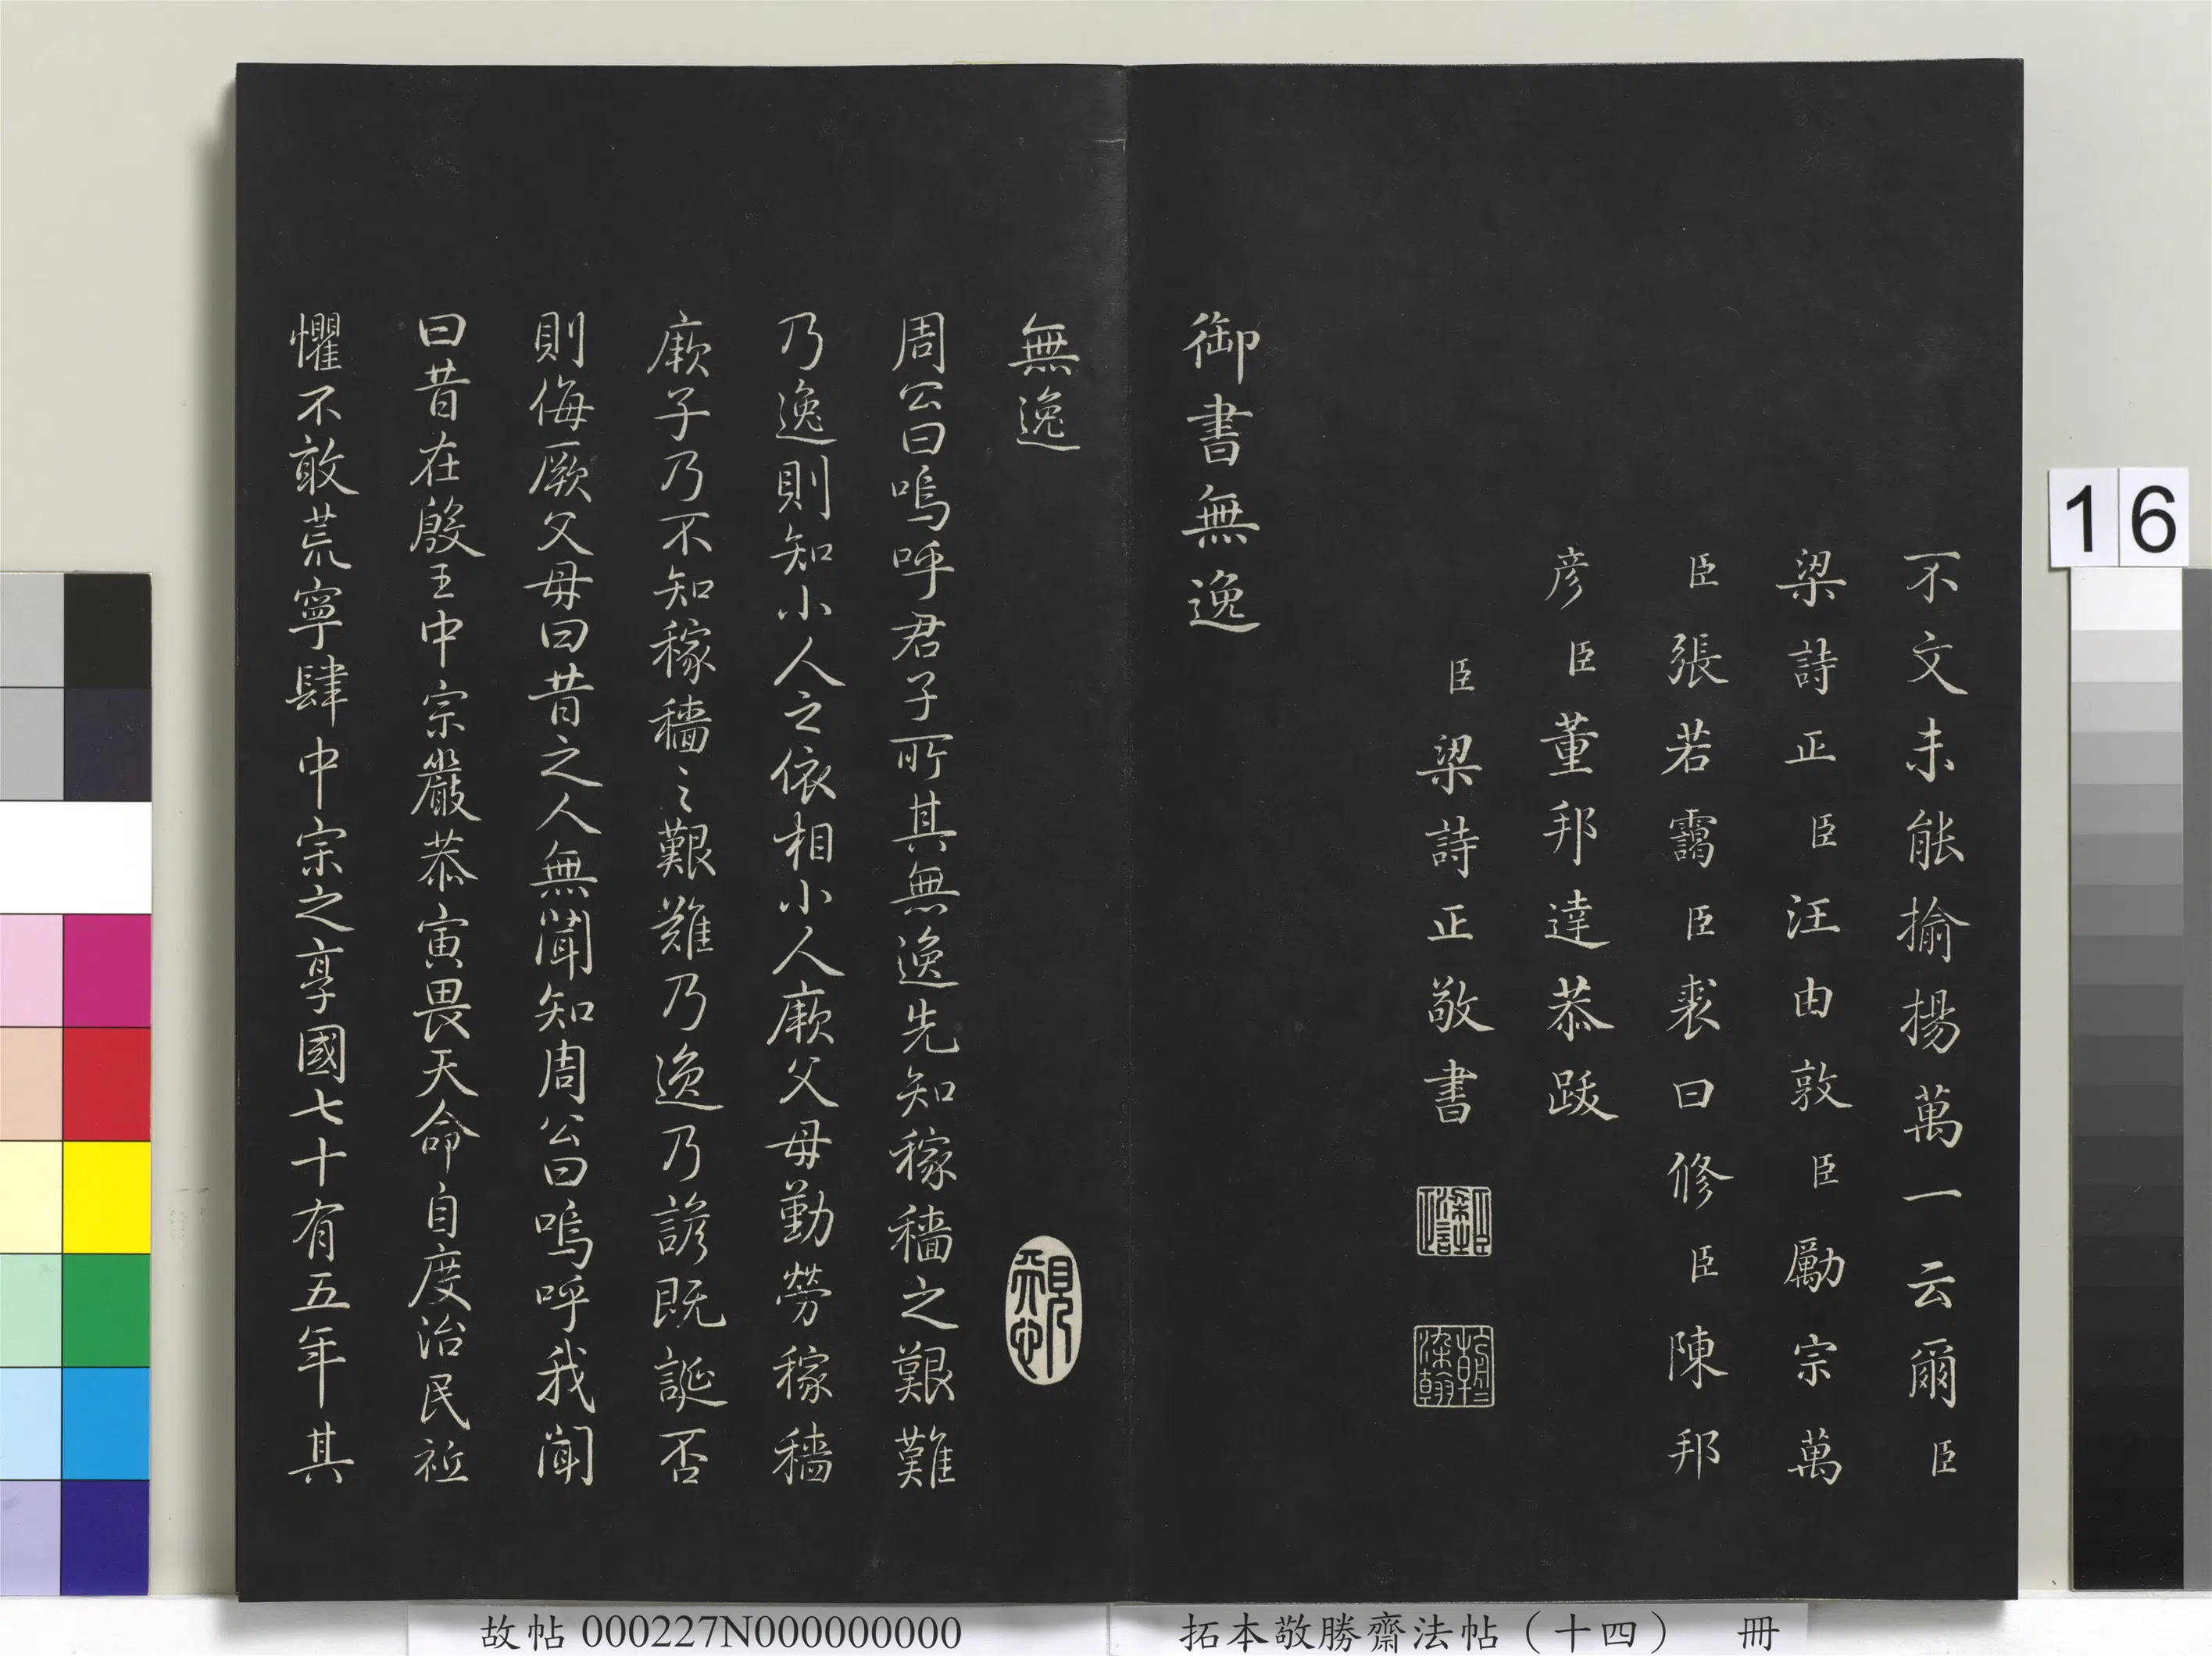 不文未能揄揚萬一云爾臣
梁詩正臣汪由敦臣勵宗萬
臣張若靄臣裘曰修臣陳邦
彥臣董邦達恭跋
臣梁詩正敬書
御書無逸
無逸
周公曰嗚呼君子所其無逸先知稼穡之艱難
乃逸則知小人之依相小人厥父母勤勞稼穡
厥子乃不知稼穡〻艱難乃逸乃諺既誕否
則侮厥父母曰昔之人無聞知周公曰嗚呼我聞
曰昔在殷王中宗嚴恭寅畏天命自度治民祗
懼不敢荒寧肆中宗之享國七十有五年其
16
故帖 000227N000000000
拓本敬勝齋法帖（十四） 冊